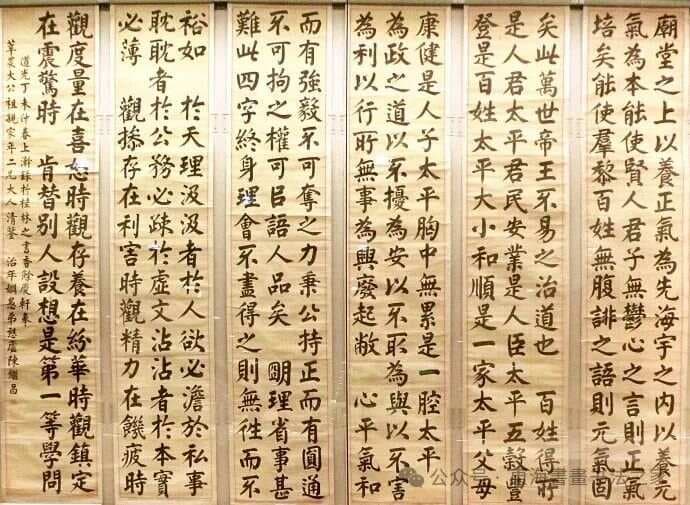 廟堂之上以養正氣為先海宇之內以養元
氣為本能使賢人君子無鬱心之言則正氣
培矣能使羣黎百姓無腹誹之語則元氣固
矣此萬世帝王不易之治道也 百姓得所
是人君太平君民安業是人臣太平五穀豐
登是百姓太平大小和順是一家太平父母
康健是人子太平胸中無累是一腔太平
為政之道以不擾為安以不取為與以不害
為利以行所無事為興廢起敝 心平氣和
而有強毅不可奪之力秉公持正而有圓通
不可拘之權可㠯語人品矣 朙理省事甚
難此四字終身理會不盡得之則無徃而不
裕如 於天理汲汲者於人欲必澹於私事
耽耽者於公務必疎於虛文沾沾者於本實
必薄 觀摻存在利害時觀精力在饑疲時
觀度量在喜怒時觀存養在紛華時觀鎮定
在震驚時 肯替別人設想是第一等學問
道光丁未仲春上澣錄於桂林之軒奉
莘農大公祖親家年二兄大人清鑒 治年姻愚弟陳繼昌
公众号